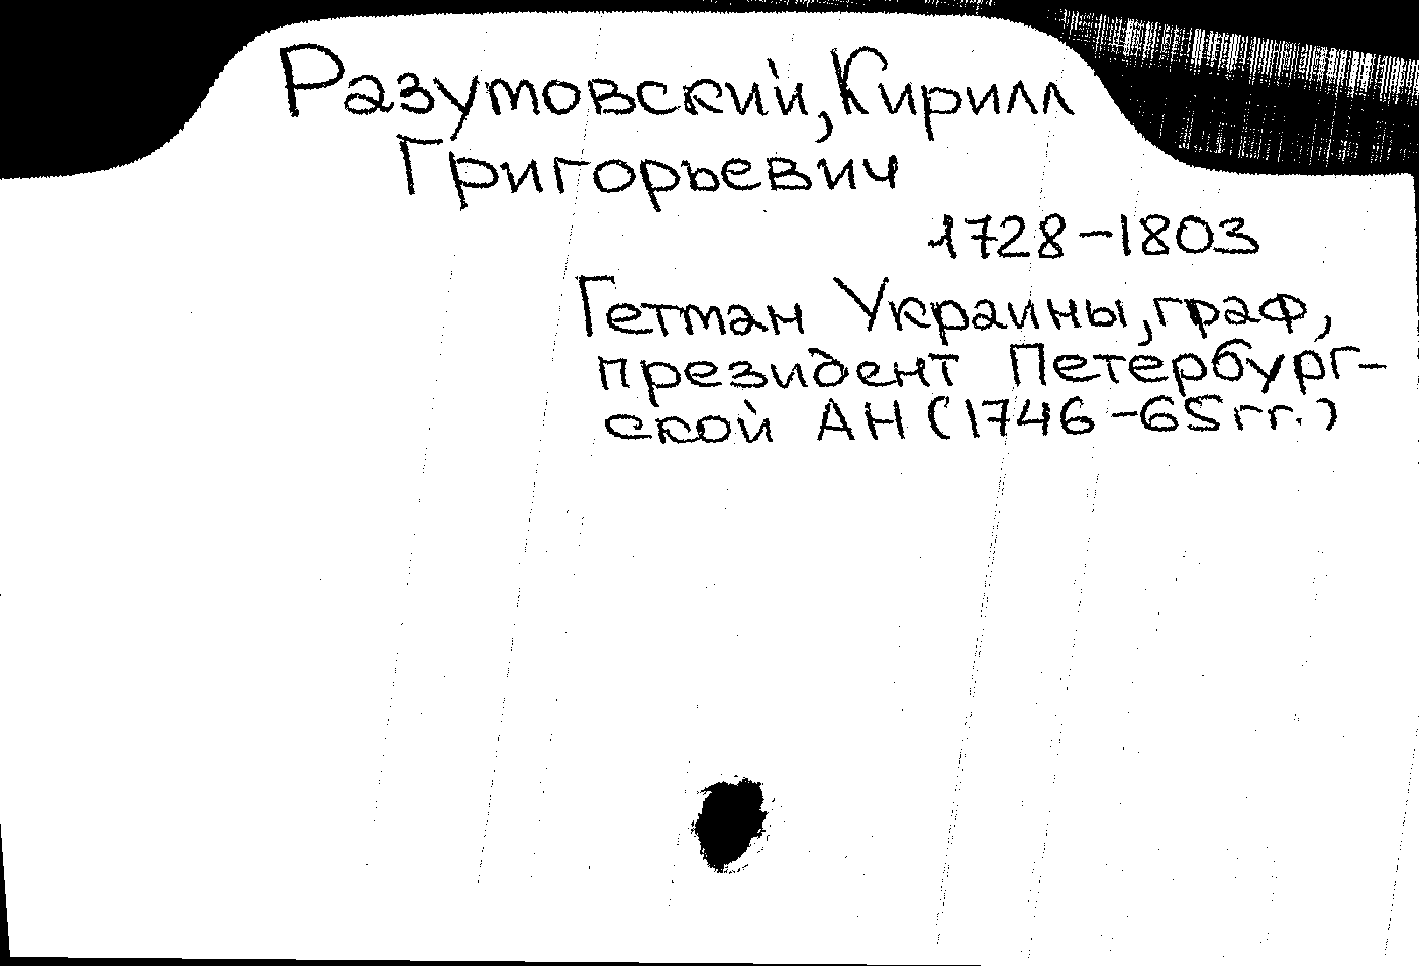 Разумовский, Кирилл
Григорьевич
1728-1803
Гетман Украины, граф,
президент Петербург-
ской АН (1746-65 гг.)